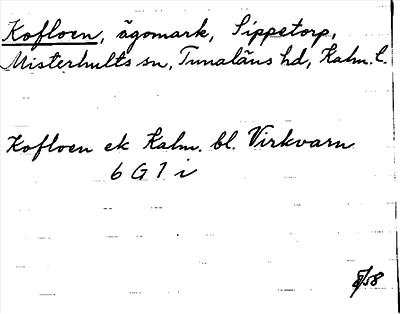 Kofloen, ägomark, Sippetorp,
Misterhults sn, Tunaläns hd, Kalm. l.
Kofloen ek Kalm. bl. Virkvarn
6 G 1 i
8/58